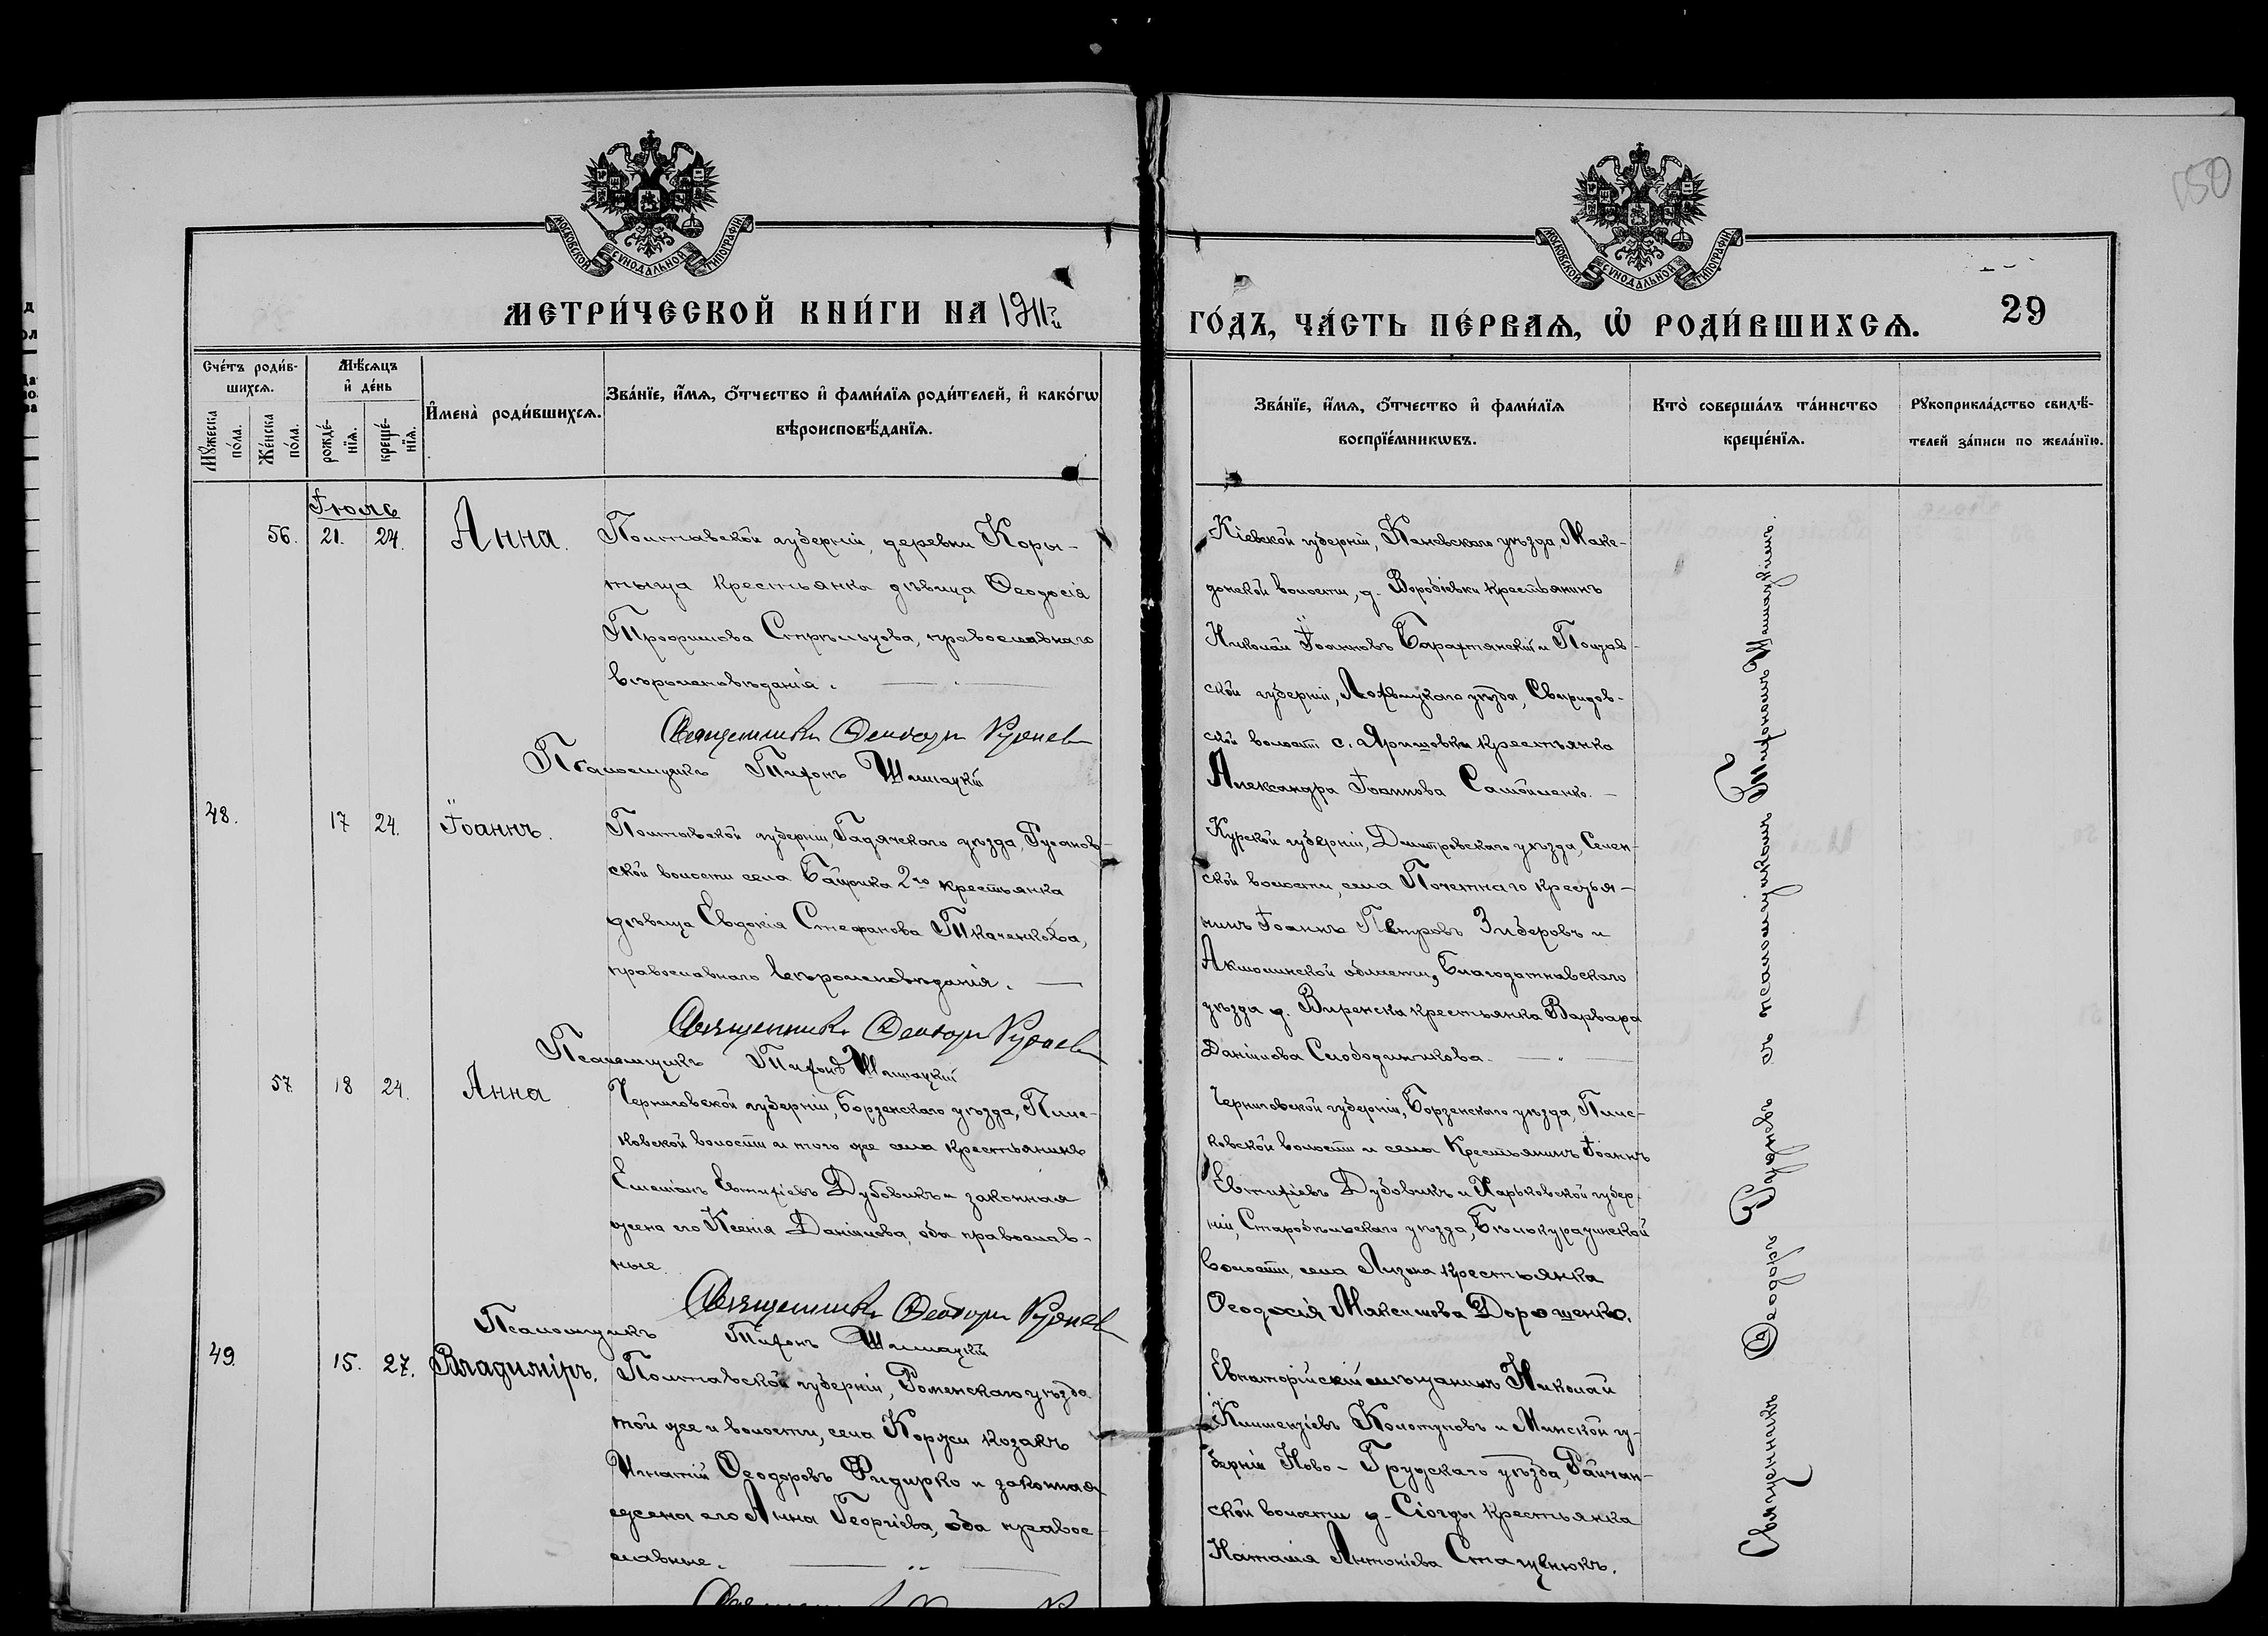 150
МОСКОВСКОЙ СѴНОДАЛЬНОЙ ТИПОГРАФІИ
МОСКОВСКОЙ СѴНОДАЛЬНОЙ ТИПОГРАФІИ
МЕТРИ́ЧЕСКОЙ КНИ́ГИ НА 1911й
ГО́ДЪ, ЧА́СТЬ ПЕ́РВАѦ, Ѡ РОДИ́ВШИХСѦ.
29
Сче́тъ роди́в-
шихсѧ.
Мꙋ́жеска по́ла.
Же́нска по́ла.
Мѣ́сѧцъ
и҆ де́нь
рожде́-
нїѧ.
креще́-
нїѧ.
И҆мена̀ роди́вшихсѧ.
Зва́нїе, и҆́мѧ, ѻ҆́тчество и҆ фами́лїѧ роди́телей, и҆ како́гѡ
вѣроисповѣ́данїѧ.
Зва́нїе, и҆́мѧ, ѻ҆́тчество и҆ фами́лїѧ
воспрїе́мникѡвъ.
Кто̀ соверша́лъ та́инство
креще́нїѧ.
Рꙋкоприкла́дство свидѣ́-
телей за́писи по жела́нїю.
Іюль
56. 21. 24. Анна.
Полтавской губерніи, деревни Коры-
тыща крестьянка дѣвица Ѳеодосія
Трофимова Стрѣльцова, православнаго
вѣроисповѣданія.
Священникъ Ѳеодоръ Рудневъ
Псаломщикъ Тихонъ Шишацкій
Кіевской губерніи, Каневскаго уѣзда, Маке-
донской волости, д. Воробіевки крестьянинъ
Николай Іоанновъ Барахтянскій и Полтав-
ской губерніи, Лохвицкаго уѣзда, Свиридов-
ской волости с. Яришовки крестьянка
Александра Іоаннова Самойленко.
48. 17 24. Іоаннъ.
Полтавской губерніи, Гадячскаго уѣзда, Русанов-
ской волости села Бацюка 2го крестьянка
дѣвица Евдокія Стефанова Ткаченкова,
православнаго вѣроисповѣданія.
Священникъ Ѳеодоръ Рудневъ
Псаломщикъ Тихонъ Шишацкій
Курской губерніи, Дмитровскаго уѣзда, Селен-
ской волости, села Почетнаго крестья-
нинъ Іоаннъ Петровъ Зиберовъ и
Акмолинской области, Благодатнавскаго
уѣзда д. Виренска крестьянка Варвара
Даніилова Слободчикова.
57. 18 24. Анна
Черниговской губерніи, Борзенскаго уѣзда, Плис-
ковской волости и того же села крестьянинъ
Емеліанъ Евтихіевъ Дубовикъ и законная
жена его Ксенія Даніилова, оба православ-
ные.
Священникъ Ѳеодоръ Рудневъ
Псаломщикъ Тихонъ Шишацкій
Черниговской губерніи, Борзенскаго уѣзда, Плис-
ковской волости и села крестьянинъ Іоаннъ
Евтихіевъ Дубовикъ и Харьковской губер-
ніи, Старобѣльскаго уѣзда, Бѣлокуракинской
волости, села Лизина крестьянка
Ѳеодосія Максимова Дорошенко.
49. 15. 27. Владиміръ.
Полтавской губерніи, Роменскаго уѣзда
той же и волости, села Коржи козакъ
Игнатій Ѳеодоровъ Фидирко и законная
жена его Анна Георгіева, оба право-
славные.
Евпаторійскій мѣщанинъ Николай
Климентіевъ Колотуповъ и Минской гу-
берніи Ново-Грудскаго уѣзда, Райчан-
ской волости д. Сіогды крестьянка
Наталія Антоніева Стащенюкъ.
Священникъ Ѳеодоръ Рудневъ съ псаломщикомъ Тихономъ Шишацкимъ.